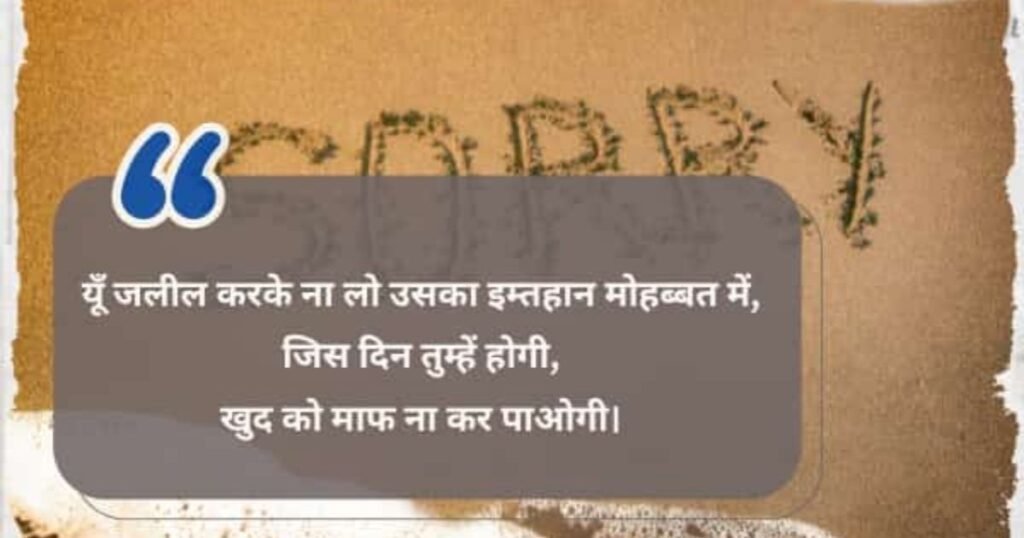 SORRY
यूँ जलील करके ना लो उसका इम्तहान मोहब्बत में,
जिस दिन तुम्हें होगी,
खुद को माफ ना कर पाओगी।